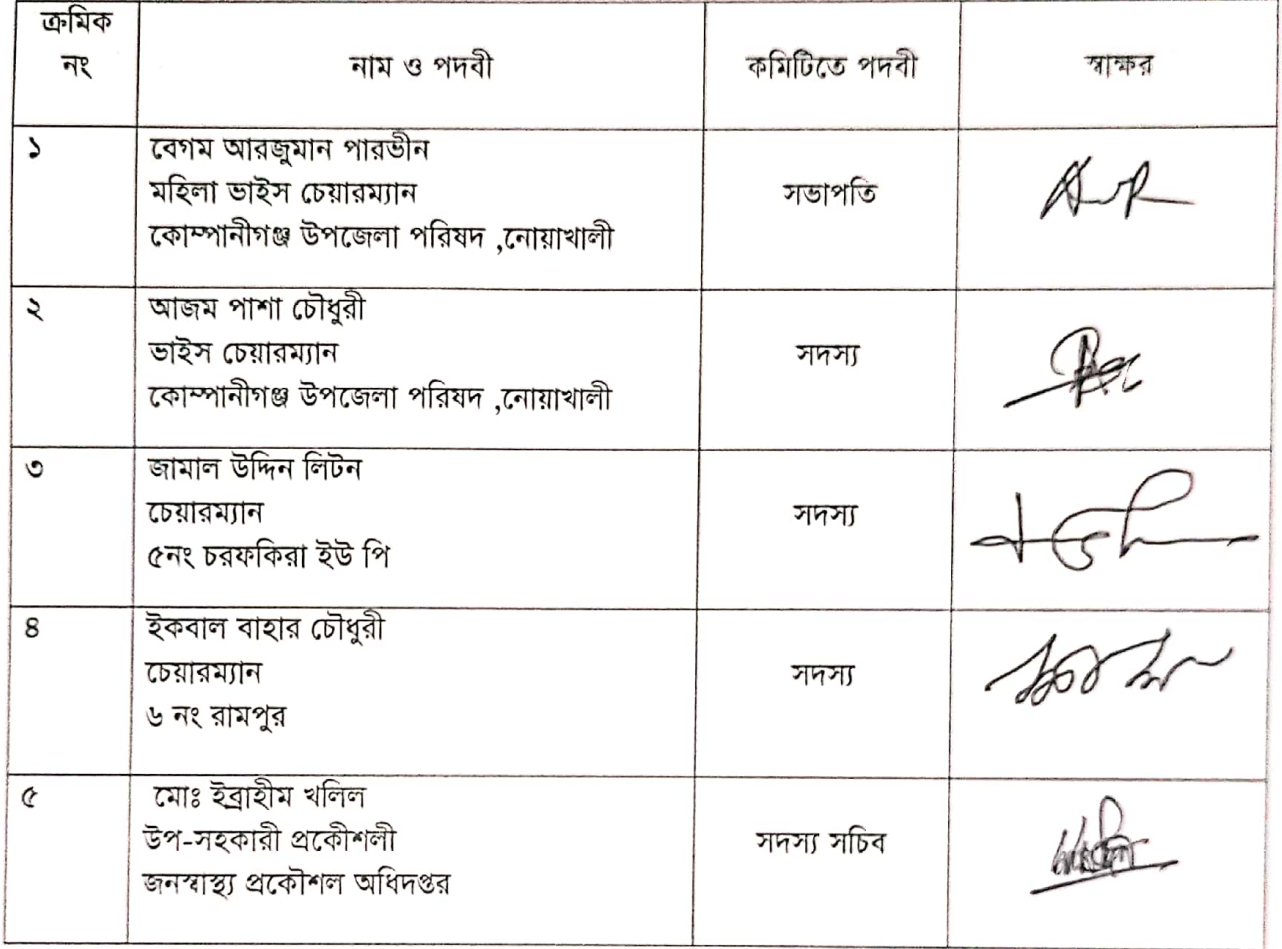 ক্রমিক
নং
নাম ও পদবী
কমিটিতে পদবী
স্বাক্ষর
১
বেগম আরজুমান পারভীন
মহিলা ভাইস চেয়ারম্যান
কোম্পানীগঞ্জ উপজেলা পরিষদ ,নোয়াখালী
সভাপতি
২
আজম পাশা চৌধুরী
ভাইস চেয়ারম্যান
কোম্পানীগঞ্জ উপজেলা পরিষদ ,নোয়াখালী
সদস্য
৩
জামাল উদ্দিন লিটন
চেয়ারম্যান
৫নং চরফকিরা ইউ পি
সদস্য
৪
ইকবাল বাহার চৌধুরী
চেয়ারম্যান
৬ নং রামপুর
সদস্য
৫
মোঃ ইব্রাহীম খলিল
উপ-সহকারী প্রকৌশলী
জনস্বাস্থ্য প্রকৌশল অধিদপ্তর
সদস্য সচিব